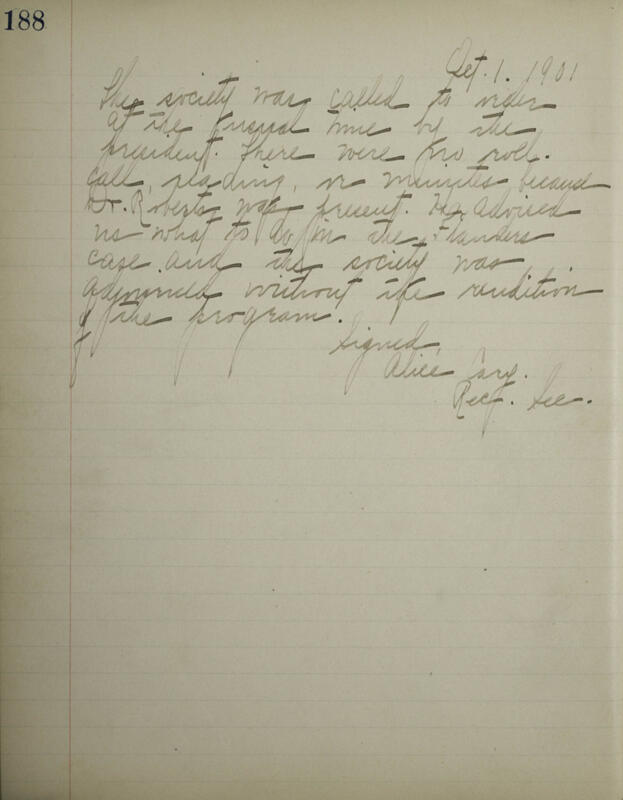 188
Oct. 1. 1901
The society was called to order
at the usual time by the
president. There were no roll-
call, reading, or minutes because
Dr. Roberts was present. He advised
us what to do in the Flanders
case and the society was
adjourned without the rendition
of the program.
Signed,
Alice Cary.
Rec. Sec.